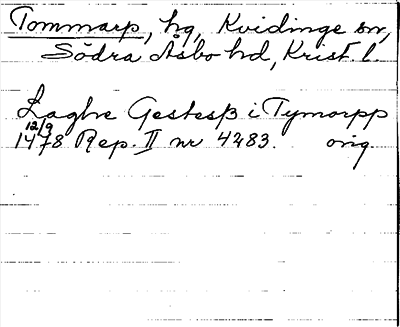 Tommarp, hg, Kvidinge sn,
Södra Åsbo hd, Krist. l.
Laghe Gestesß i Tymarpp
12/9
1478 Rep. II nr 4283. orig.